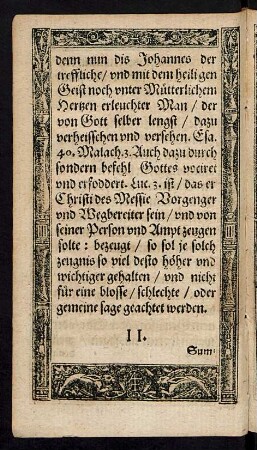 denn nun dis Johannes der
treffliche/ vnd mit dem heiligen
Geist noch vnter Mütterlichem
Hertzen erleuchter Man/ der
von Gott selber lengst/ dazu
verheisschen vnd versehen. Esa.
40. Malach. 3. Auch dazu durch
sondern befehl Gottes vociret
vnd erfoddert. Luc. 3. ist/ das er
Christi des Messie Vorgenger
vnd Wegbereiter sein/ vnd von
seiner Person vnd Ampt zeugen
solte: bezeugt/ so sol je solch
zeugnis so viel desto höher vnd
wichtiger gehalten/ vnd nicht
für eine blosse/ schlechte/ oder
gemeine sage geachtet werden.
II.
Sum⸗